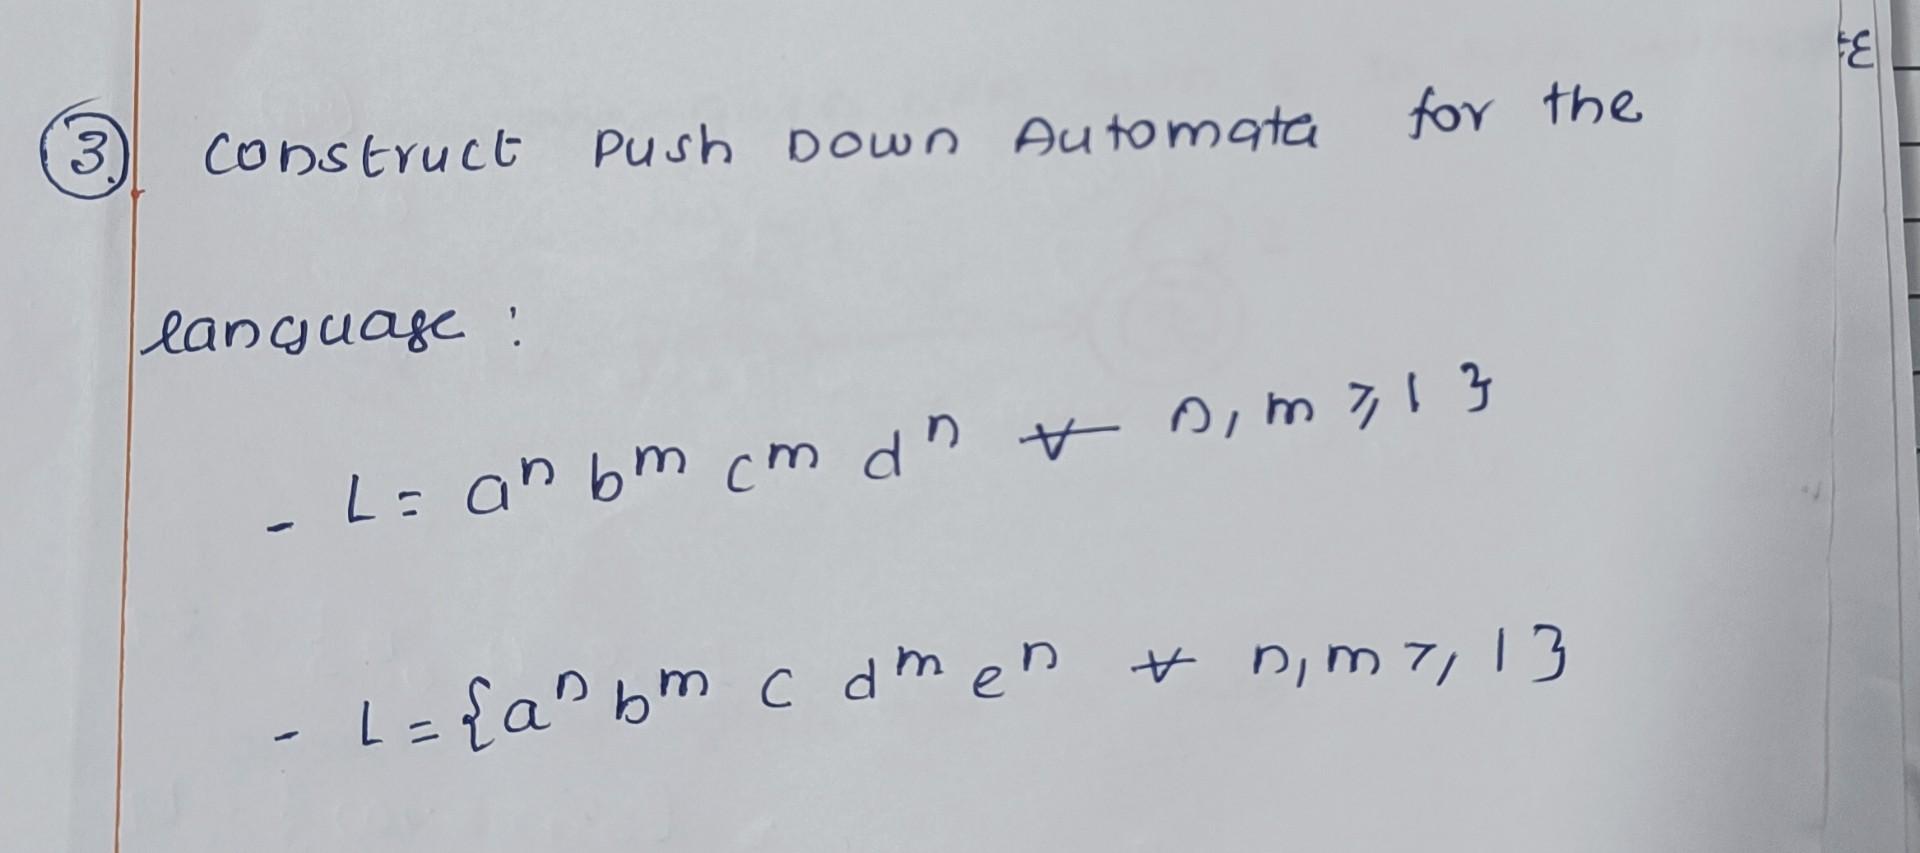 3. Construct Push Down Automata for the
language :
- L = aⁿ bᵐ cᵐ dⁿ ∀ n, m ≥ 1 }
- L = {aⁿ bᵐ c dᵐ eⁿ ∀ n, m ≥ 1 }